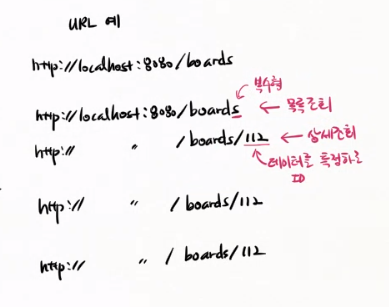 URL 예
http://localhost:8080/boards
복수형
http://localhost:8080/boards ← 목록조회
http:// " /boards/112 ← 상세조회
데이터를 특정하는
ID
http:// " /boards/112
http:// " /boards/112